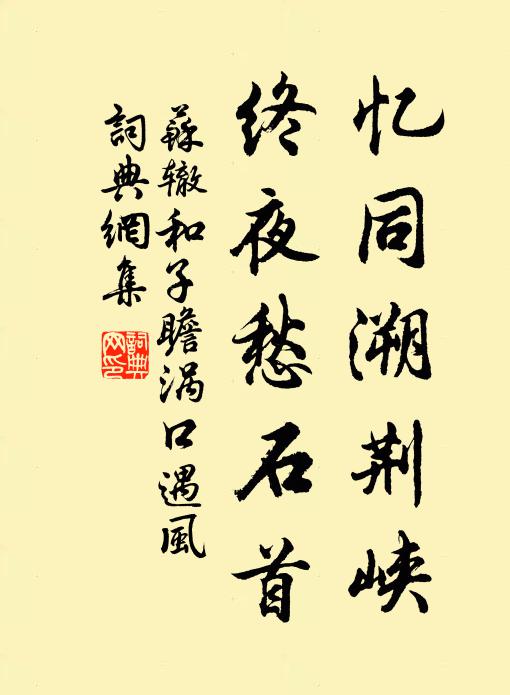 忆同溯荆峡
终夜愁石首
蘇辙和子瞻涡口遇風
詞典網集
詞典网印